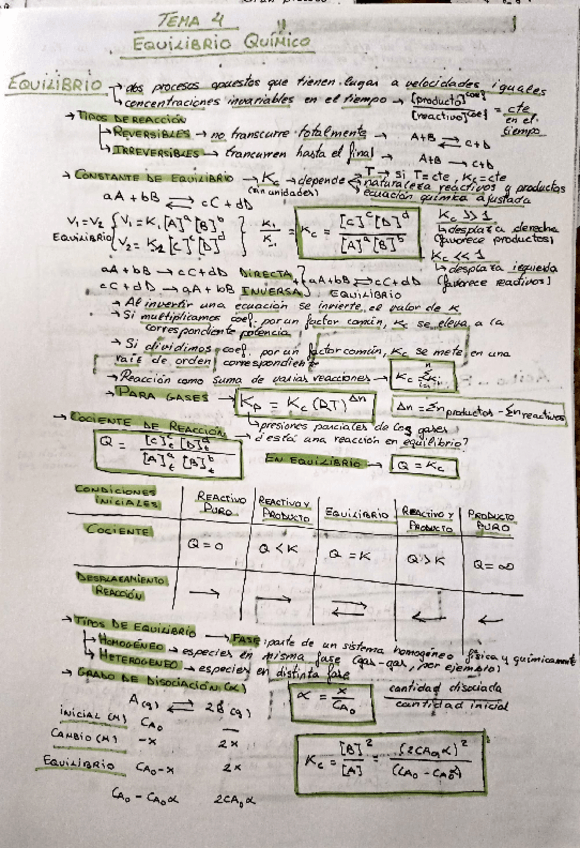 TEMA 4
EQUILIBRIO QUÍMICO
EQUILIBRIO → dos procesos opuestos que tienen lugar a velocidades iguales
→ concentraciones invariables en el tiempo → [producto]^coef / [reactivo]^coef = cte en el tiempo
→ TIPOS DE REACCIÓN
→ REVERSIBLES → no transcurre totalmente → A+B ⇌ C+D
→ IRREVERSIBLES → transcurren hasta el final → A+B → C+D
→ CONSTANTE DE EQUILIBRIO → Kc (sin unidades) → depende
T → si T = cte, Kc = cte
naturaleza reactivos y productos
ecuación química ajustada
aA + bB ⇌ cC + dD
V1 = V2 EQUILIBRIO
V1 = K1 [A]^a [B]^b
V2 = K2 [C]^c [D]^d
Kc = [C]^c [D]^d / [A]^a [B]^b
Kc >> 1
↳ desplaza derecha
(favorece productos)
Kc << 1
↳ desplaza izquierda
(favorece reactivos)
aA + bB → cC + dD DIRECTA
cC + dD → aA + bB INVERSA
aA + bB ⇌ cC + dD
EQUILIBRIO
→ Al invertir una ecuación se invierte el valor de K
→ Si multiplicamos coef. por un factor común, Kc se eleva a la
correspondiente potencia
→ Si dividimos coef. por un factor común, Kc se mete en una
raíz de orden correspondiente
→ Reacción como suma de varias reacciones →
→ PARA GASES → Kp = Kc (RT)^Δn
Δn = Σn productos - Σn reactivos
↳ presiones parciales de los gases
→ COCIENTE DE REACCIÓN → ¿está una reacción en equilibrio?
Q = [C]t^c [D]t^d / [A]t^a [B]t^b
EN EQUILIBRIO → Q = Kc
CONDICIONES INICIALES | REACTIVO PURO | REACTIVO Y PRODUCTO | EQUILIBRIO | REACTIVO Y PRODUCTO | PRODUCTO PURO
COCIENTE | Q = 0 | Q < K | Q = K | Q > K | Q = ∞
DESPLAZAMIENTO REACCIÓN | → | → | ⇌ | ← | ←
→ TIPOS DE EQUILIBRIO → FASE: parte de un sistema homogéneo física y químicamente
→ HOMOGÉNEO → especies en misma fase (gas-gas, por ejemplo)
→ HETEROGÉNEO → especies en distinta fase
→ GRADO DE DISOCIACIÓN (α)
α = x / CA0
cantidad disociada / cantidad inicial
A(g) ⇌ 2B(g)
INICIAL (M) CA0 —
CAMBIO (M) -x 2x
EQUILIBRIO CA0-x 2x
CA0 - CA0α 2CA0α
Kc = [B]^2 / [A] = (2CA0α)^2 / (CA0 - CA0α)